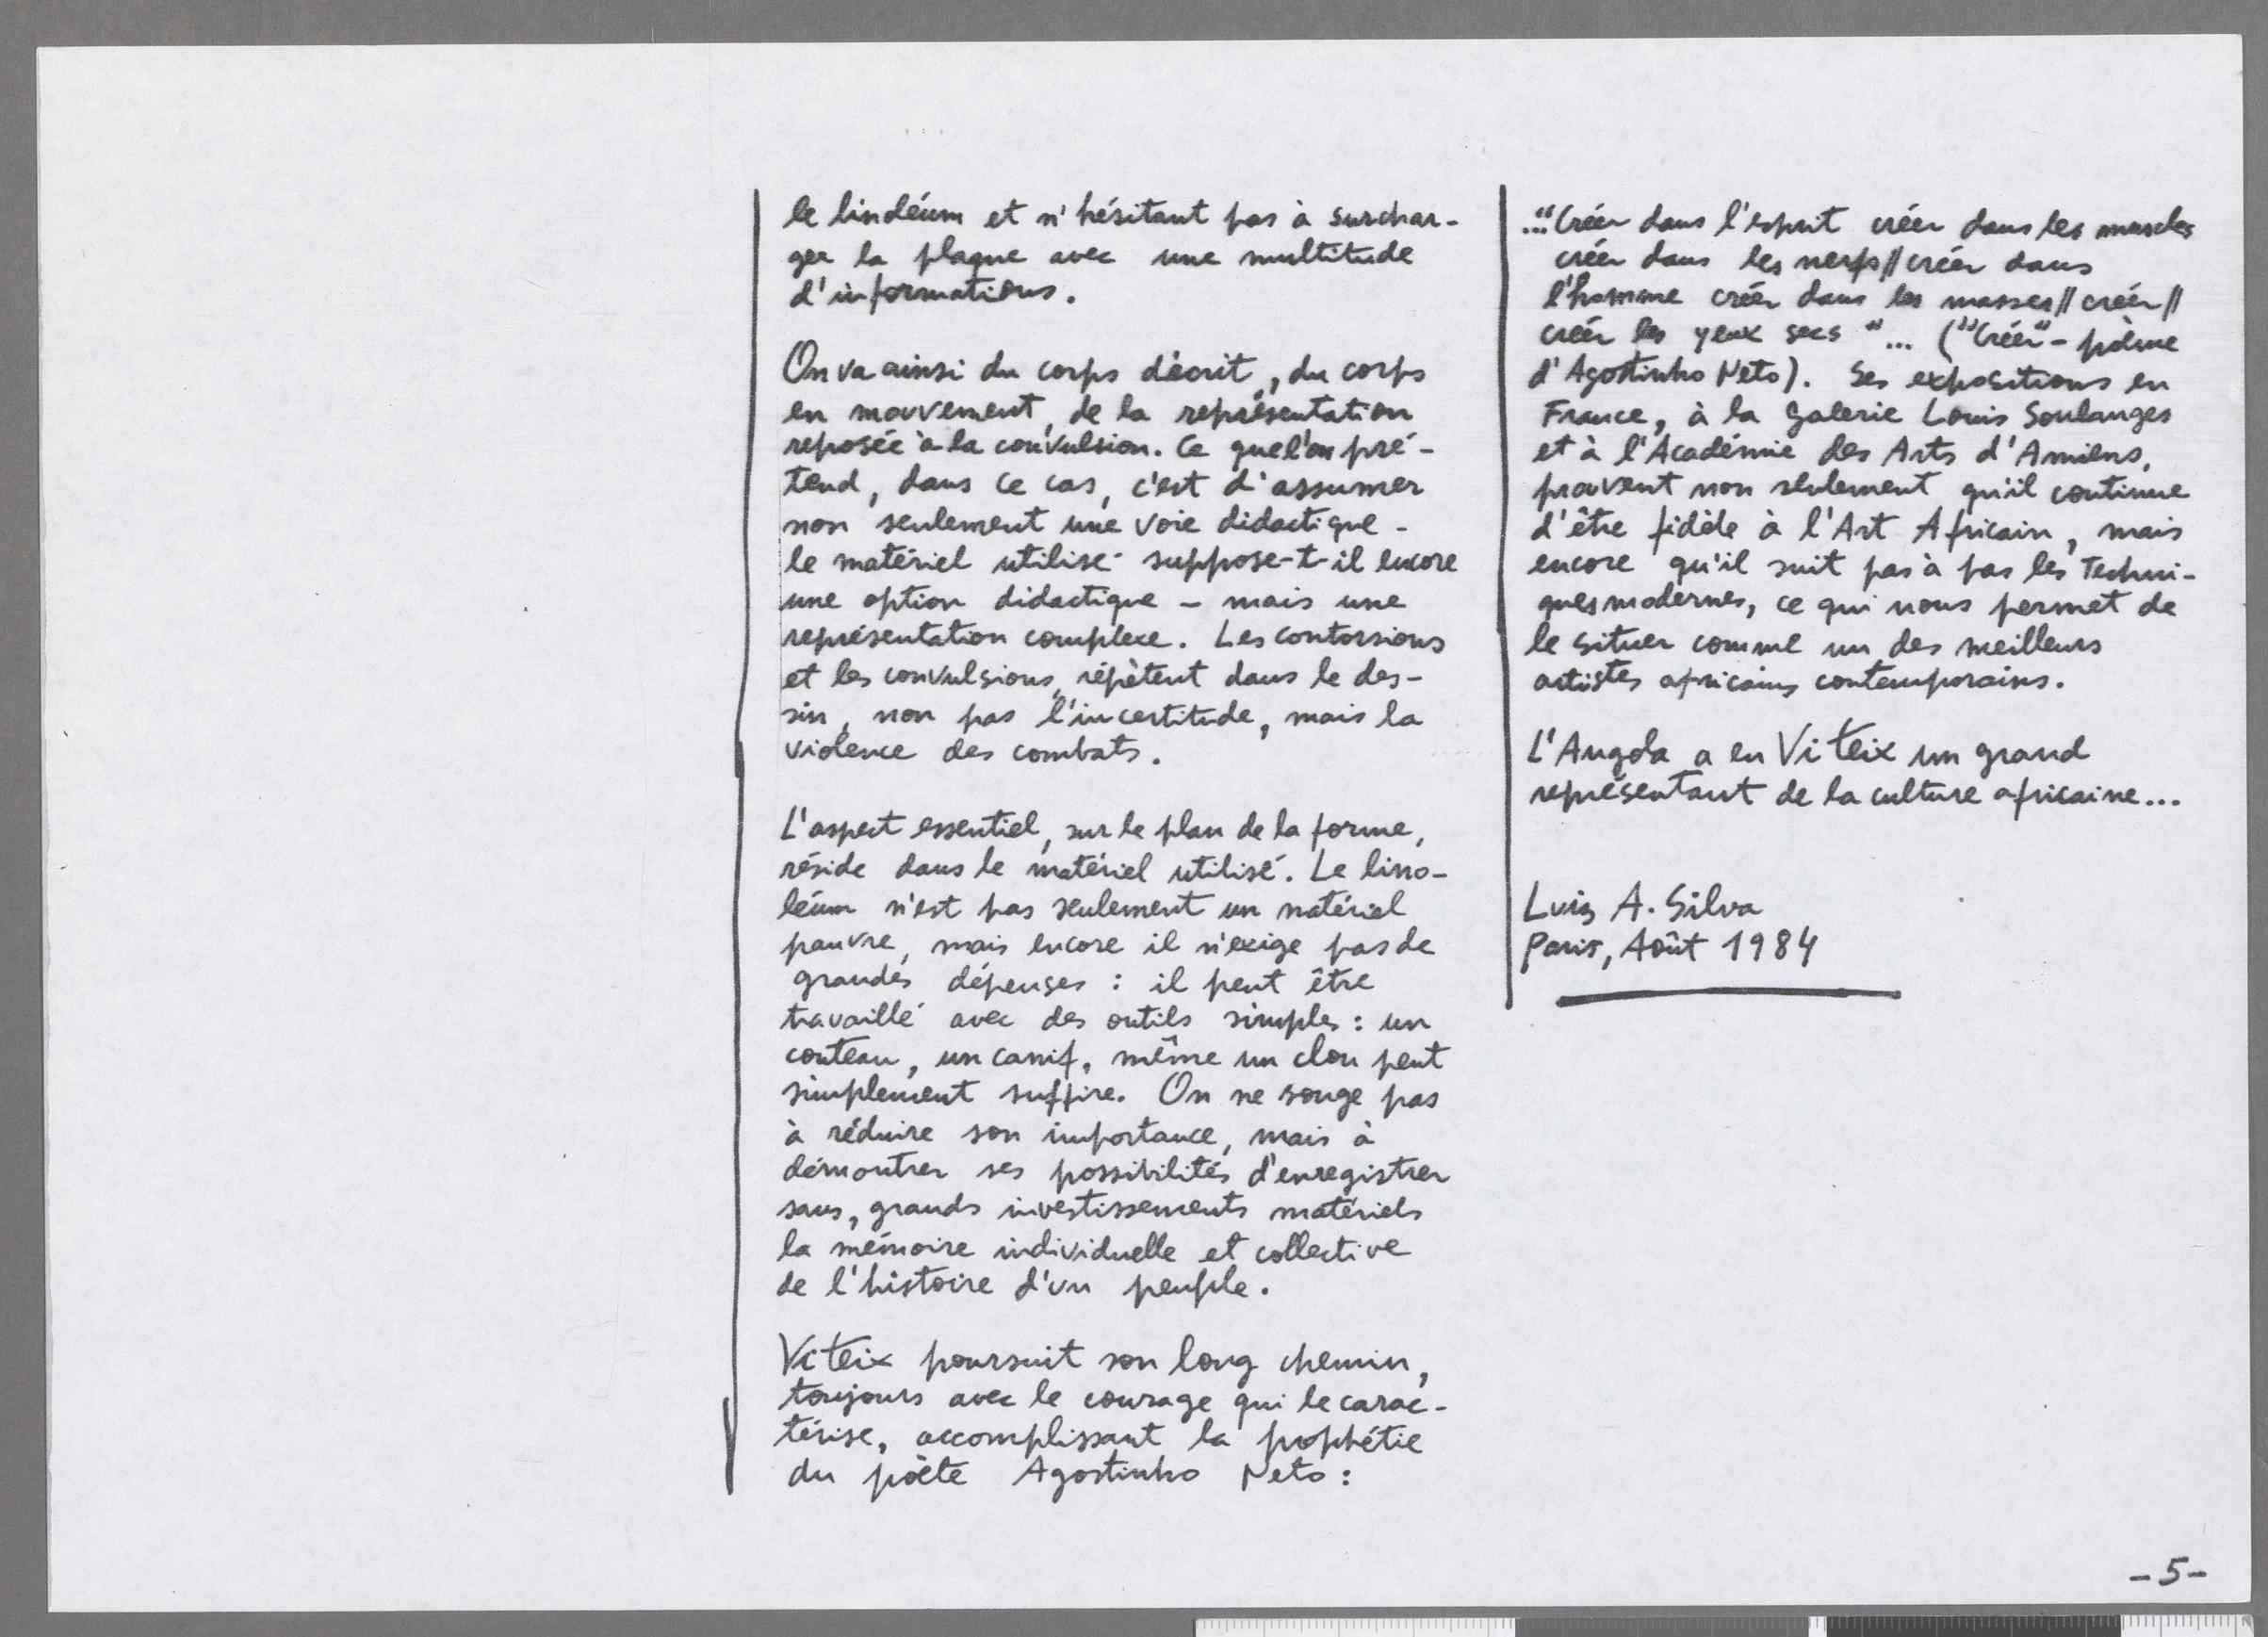 le linoléum et n'hésitant pas à surchar-
ger la plaque avec une multitude
d'informations.
On va ainsi du corps décrit, du corps
en mouvement, de la représentation
reposée à la convulsion. Ce quel'on pré-
tend, dans ce cas, c'est d'assumer
non seulement une voie didactique -
le matériel utilisé suppose-t-il encore
une option didactique - mais une
représentation complexe. Les contorsions
et les convulsions, répètent dans le des-
sin, non pas l'incertitude, mais la
violence des combats.
L'aspect essentiel, sur le plan de la forme,
réside dans le matériel utilisé. Le lino-
léum n'est pas seulement un matériel
pauvre, mais encore il n'exige pas de
grandes dépenses : il peut être
travaillé avec des outils simples : un
couteau, un canif, même un clou peut
simplement suffire. On ne songe pas
à réduire son importance, mais à
démontrer ses possibilités d'enregistrer
sans, grands investissements matériels
la mémoire individuelle et collective
de l'histoire d'un peuple.
Viteix poursuit son long chemin,
toujours avec le courage qui le carac-
térise, accomplissant la prophétie
du pòète Agostinho Neto :
..."Créer dans l'esprit créer dans les muscles
créer dans les nerfs//créer dans
l'homme créer dans les masses//créer//
créer les yeux secs "... ("Créer" - pòème
d'Agostinho Neto). Ses expositions en
France, à la Galerie Louis Soulanges
et à l'Académie des Arts d'Amiens,
prouvent non seulement qu'il continue
d'être fidèle à l'Art Africain, mais
encore qu'il suit pas à pas les Techni-
ques modernes, ce qui nous permet de
le situer comme un des meilleurs
artistes africains contemporains.
L'Angola a en Viteix un grand
représentant de la culture africaine...
Luis A. Silva
Paris, Août 1984
-5-